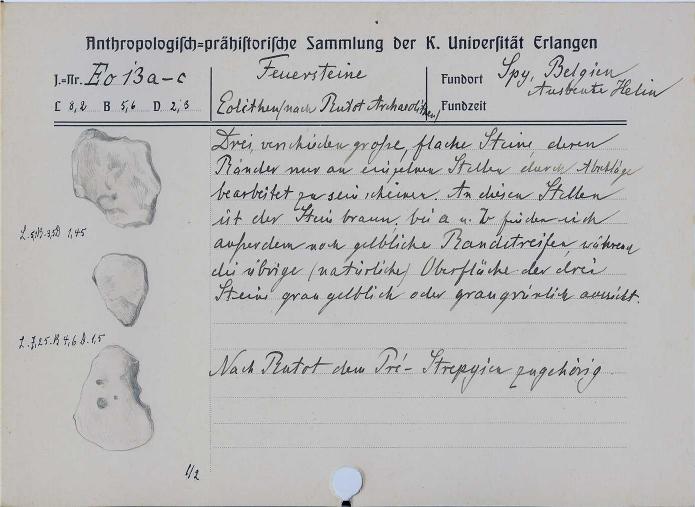 Anthropologisch=prähistorische Sammlung der K. Universität Erlangen
J.=Nr. Eo 13 a-c
L 8,2 B 5,6 D 2,3
Feuersteine
Eolithen (nach Rutot Archaeolithen)
Fundort Spy, Belgien
Ausbeute Helin
Fundzeit
Drei, verschieden große, flache Steine, deren
Ränder nur an einzelnen Stellen durch Abschläge
bearbeitet zu sein scheinen. An diesen Stellen
ist der Stein braun, bei a u. b finden sich
außerdem noch gelbliche Randstreifen, während
die übrige (natürliche) Oberfläche der drei
Steine graugelblich oder graugrünlich aussieht.
Nach Rutot dem Pré- Strepyien zugehörig
L. 5,1 B. 3,5 D 1,45
L. 7,25. B 4,6 D. 1,5
1/2